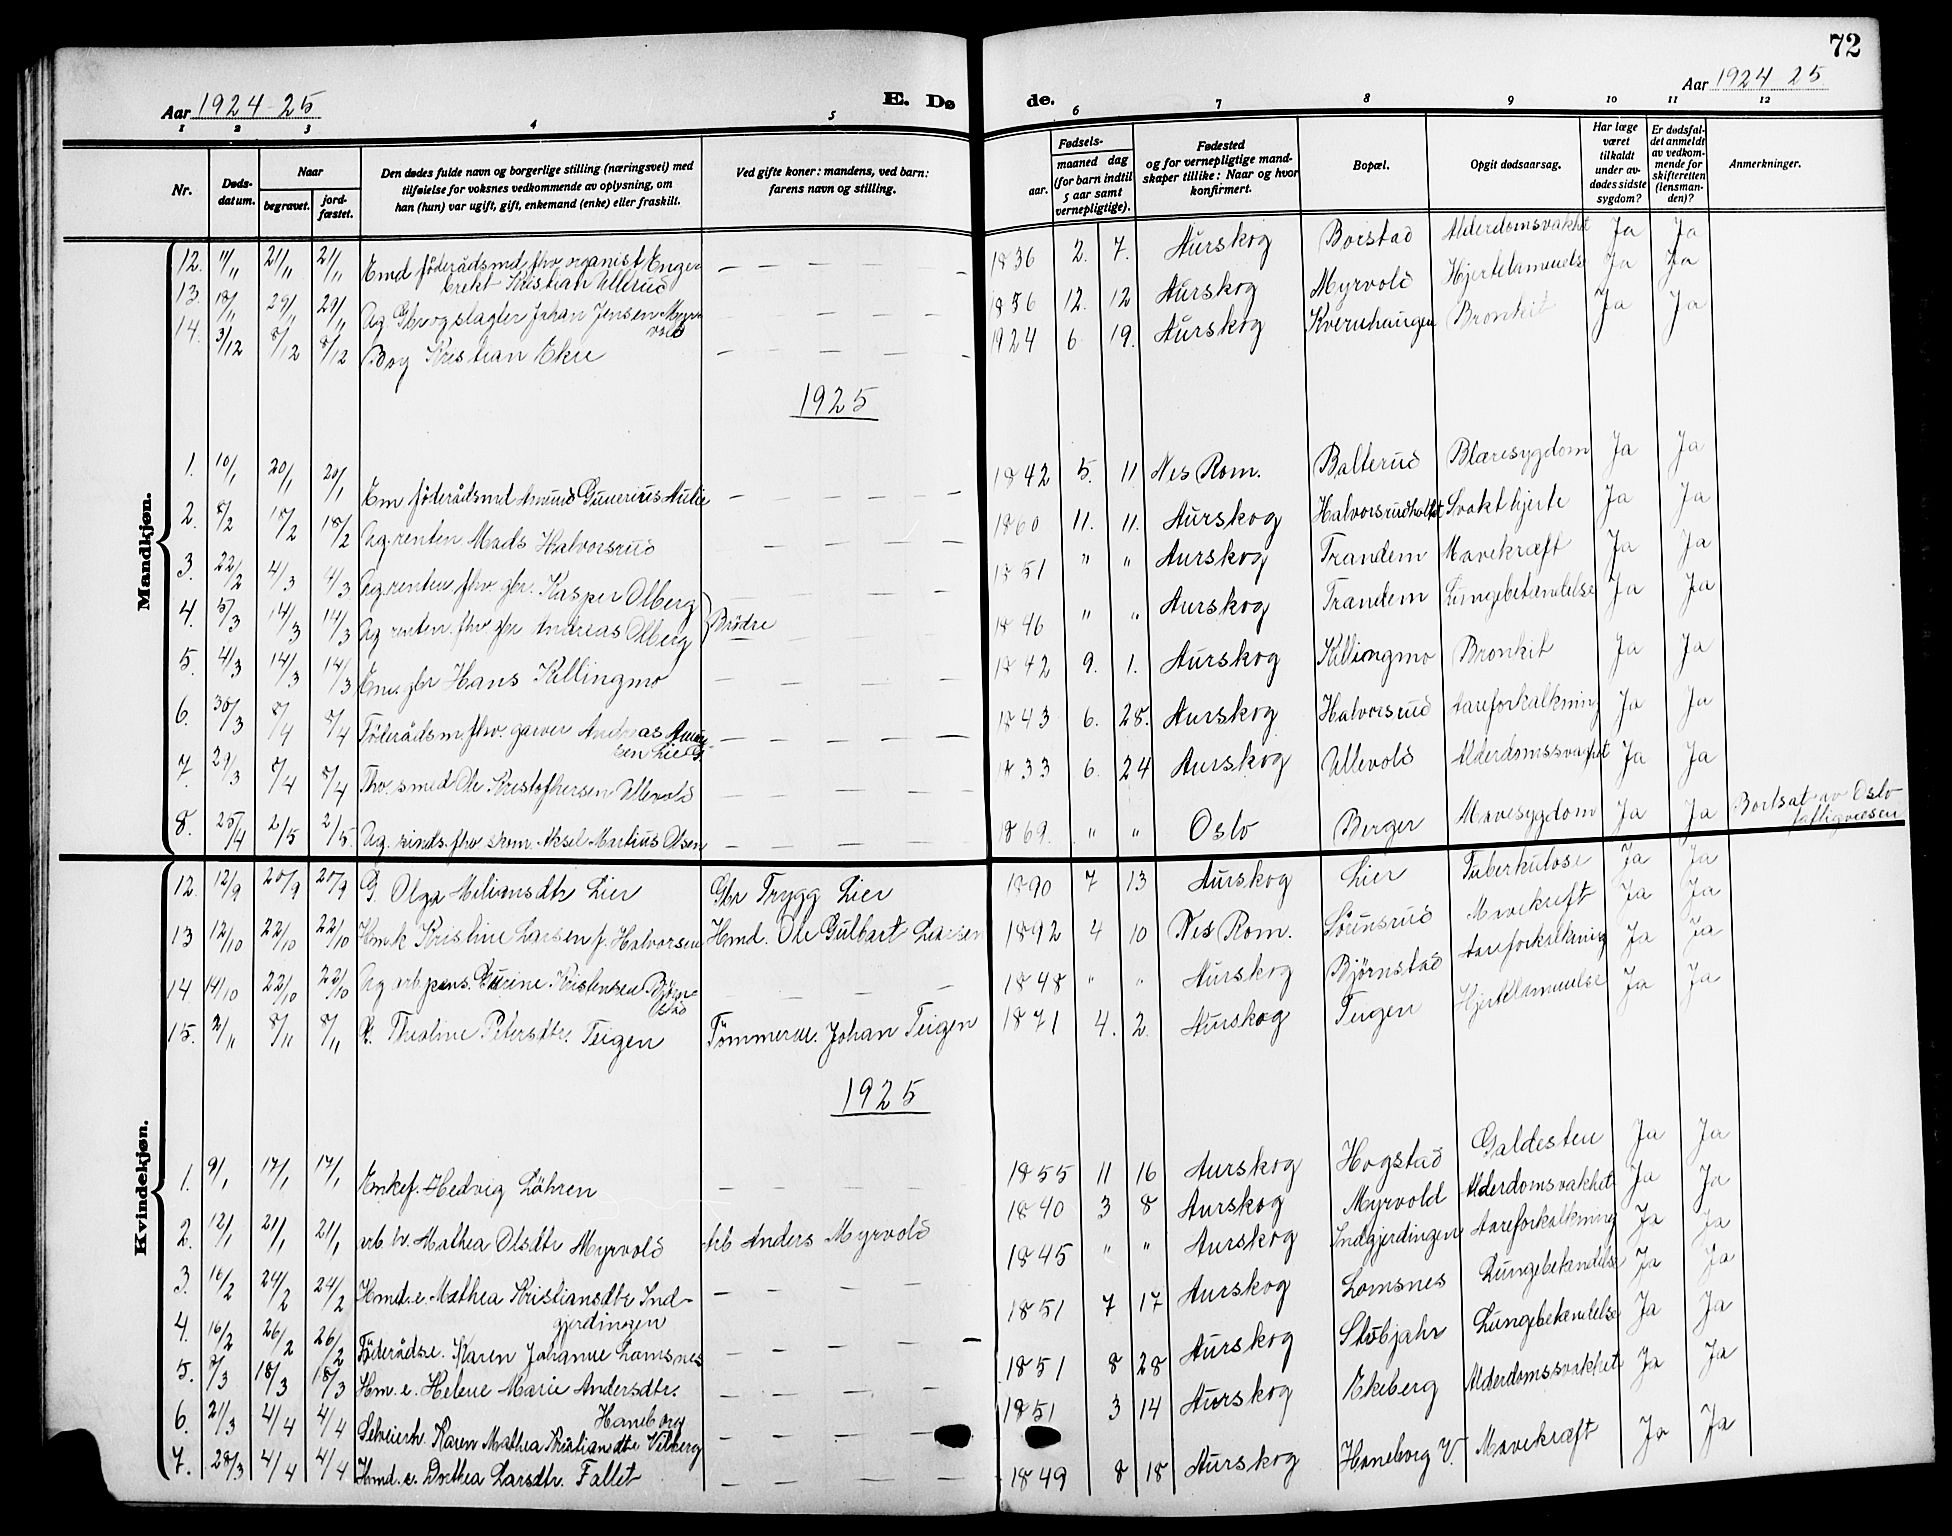 72
Aar 1924-25
E. Dø
de.
Aar 1924 25
1 2 3 4 5 6 7 8 9 10 11 12
Nr.
Døds-
datum.
Naar
begravet.
jord-
fæstet.
Den dødes fulde navn og borgerlige stilling (næringsvei) med
tilføielse for voksnes vedkommende av oplysning, om
han (hun) var ugift, gift, enkemand (enke) eller fraskilt.
Ved gifte koner: mandens, ved barn:
farens navn og stilling.
Fødsels-
aar.
maaned dag
(for barn indtil
5 aar samt
vernepligtige).
Fødested
og for vernepligtige mand-
skaper tillike: Naar og hvor
konfirmert.
Bopæl.
Opgit dødsaarsag.
Har læge
været
tilkaldt
under av-
dødes sidste
sygdom?
Er dødsfal-
det anmeldt
av vedkom-
mende for
skifteretten
(lensman-
den)?
Anmerkninger.
Mandkjøn.
12. 11/11 21/11 21/11 Emd föderådsmd fhv organist Enge-
brekt Kristian Ullerud — 1836 2. 7. Aurskog Borstad Alderdomsvakhet Ja Ja
13. 18/11 29/11 29/11 Ug Gbr og slagter Johan Jensen Myr-
vold — 1856 12. 12 Aurskog Myrvold Hjertelammelse Ja Ja
14. 3/12 8/12 8/12 Kristian Eke — 1924 6 19. Aurskog Kvernhaugen Bronkit Ja Ja
1925
1. 10/1 20/1 20/1 Em föderådsmd Amund Gunerius Aulie — 1842 5. 11 Nes Rom. Balterud Blæresygdom Ja Ja
2. 8/2 18/2 18/2 Ug. renten Mads Halvorsrud — 1860 11. 11. Aurskog Svakt hjerte Ja Ja
3. 22/2 4/3 4/3 Ug. renten fhv. gbr. Kasper Olberg — 1851 " " Aurskog Trandem Mavekræft Ja Ja
4. 5/3 14/3 14/3 Ug renten fhv. gbr Andreas Olberg Brödre 1846 " " Aurskog Trandem Lungebetændelse Ja Ja
5. 4/3 14/3 14/3 Em. gbr Hans Killingmo — 1842 9. 1. Aurskog Killingmo Bronkit Ja Ja
6. 30/3 8/4 8/4 Föderådsm fhv. garver Andreas
— 1843 6. 28. Aurskog Halvorsrud Aareforkalkning Ja Ja
7. 29/3 8/4 8/4 Fhv. smed Ole Kristofhersen Ullevold — 1833 6. 24 Aurskog Ullevold Alderdomssvakhet Ja Ja
8. 25/4 2/5 2/5. Ug. fhv skom. Aksel Martius Olsen — 1869. " " Oslo Berger Mavesygdom Ja Ja Bortsat av Oslo
fattigvæsen
Kvindekjøn.
12. 12/9 20/9 20/9 G. Olga Miliansdtr Lier Gbr Trygg Lier 1890 7 13 Aurskog Lier Tuberkulose Ja Ja
13 12/10 22/10 22/10 Hmk Kristine Larsen f. Halvorsen Hmd. Ole Gulbart Larsen 1892 4 10 Nes Rom. Sörensrud Mavekreft Ja Ja
14 14/10 22/10 22/10 Ug arb pens. Kristensen Bjørn-
stad — 1848 " " Aurskog Björnstad Aareforkalkning Ja Ja
15. 2/11 8/11 8/11 Thialine Petersdtr. Teigen Tömmerm. Johan Teigen 1871 4. 2. Aurskog Teigen Hjertelammelse Ja Ja
1925
1. 9/1 17/1 17/1 Enkef. Hedvig Löhren — 1855 11 16 Aurskog Hogstad Galdesten Ja Ja
2. 12/1 21/1 21/1 arb hv. Mathea Olsdtr Myrvold Arb Anders Myrvold 1840 3 8 Aurskog Myrvold Alderdomsvakhet Ja Ja
3. 16/2 24/2 24/2 Hmd. e. Mathea Kristiansdtr Ind-
gjerdingen — 1845 " " Aurskog Indgjerdingen Aareforkalkning Ja Ja
4. 16/2 26/2 26/2 Föderådse. Karen Johanne Lomsnes — 1851 7 17 Aurskog Lomsnes Lungebetændelse Ja Ja
5. 8/3 18/3 18/3 Hm. e. Helene Marie Andersdtr.
Haneborg — 1851 8 28 Aurskog Lungebetændelse Ja Ja
6. 21/3 4/4 4/4 Selveierk Karen Mathea Kristiandtr Vilberg — 1851 3 14 Aurskog Ekeberg Alderdomssvakhet Ja Ja
7. 28/3 4/4 4/4 Hmd. e. Dorthea Larsdtr. Fallet — 1849 8 18 Aurskog Haneborg V. Mavekræft Ja Ja